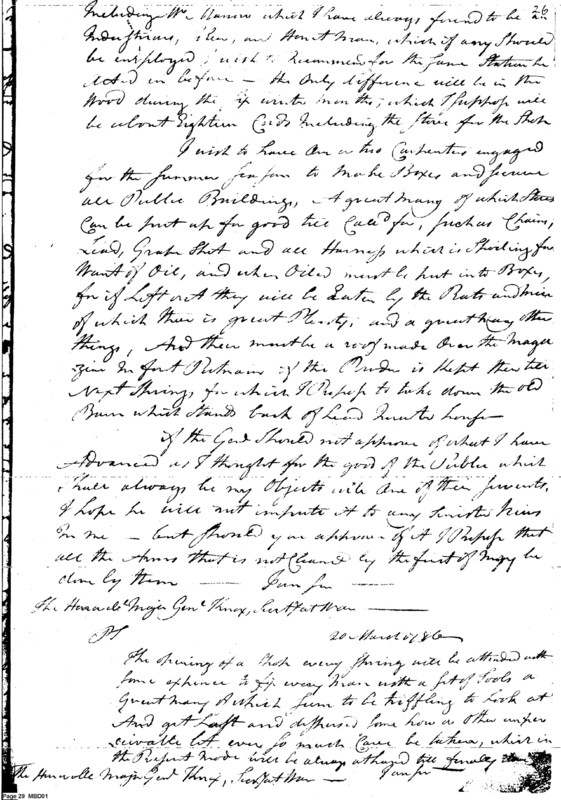 26
Including Mr. which I have always found to be an
Industrious, and Honest Man, which if any Should
be imployed I wish to Recommend for the Same Station he
Acted in before — the Only difference will be in the
Wood during the six winter months; which I Suppose will
be about Eighteen Cords Including the Stove for the Shop
I wish to have One or two Carpenters engaged
for the Summer Season to Make Boxes and secure
all Public Buildings, A great many of which Stores
Can be put up for good till Call'd for, Such as Chains,
Lead, Grape Shot and all Harness which is Spoiling for
Want of Oil, and when Oiled must be put into Boxes,
for if Left out they will be Eaten by the Rats and mice
of which their is great Plenty; and a great many other
things, And there must be a roof made Over the Maga
zine In fort Putnam if the Powder is Kept there till
Next Spring, for which I Propose to take down the old
Barn which Stands back of Head Quarter house —
if the Genl. Should not approve of what I have
Advanced as I thought for the good of the Publick which
Shall always be my Objects with One of their Servants,
I hope he will not impute it to any Sinister Views
In me — but Should you approve of it I Propose that
all the Arms that is not Cleaned by the first of May be
done by them — I am Sir —
The Honorable Major Genl. Knox, Secty at War —
PS 20 March 1786
The opening of a Shop every Spring will be attended with
Some expence to fix every Man with a set of Tools a
Great many of which Seem to be triffling to Look at
And get Lost and some how or other
let ever so much Care be taken, which in
the Present mode will be always
The Honorable Major Genl. Knox, Secty at War — I am Sir
Page 29 MBD01